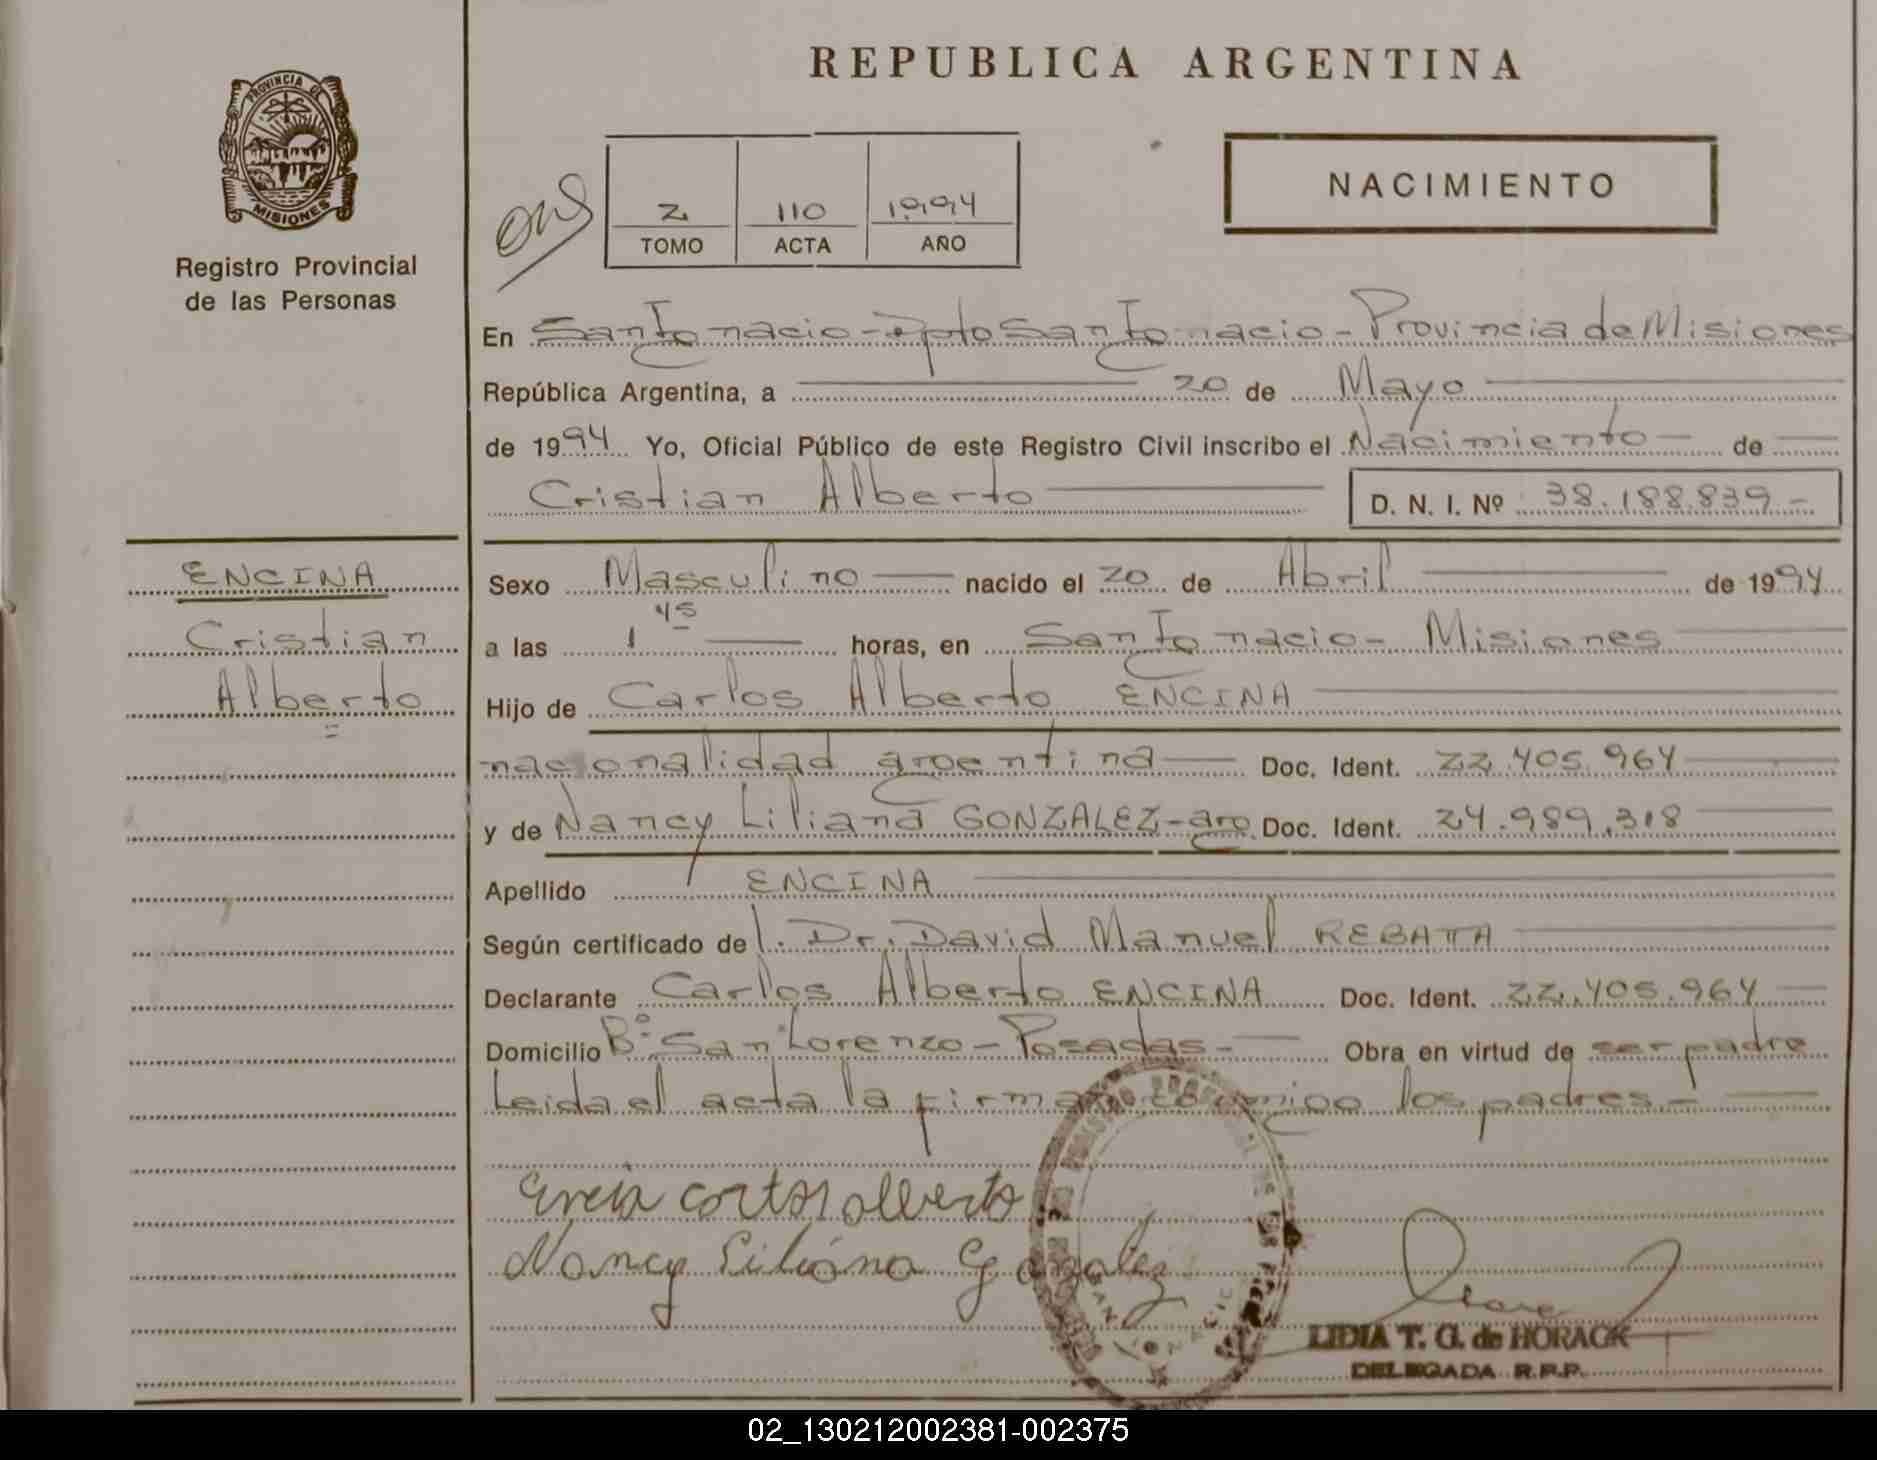 REPUBLICA ARGENTINA
PROVINCIA DE
MISIONES
Registro Provincial
de las Personas
2 110 1994
TOMO ACTA AÑO
NACIMIENTO
En San Ignacio - Dpto San Ignacio - Provincia de Misiones
República Argentina, a 20 de Mayo
de 1994 Yo, Oficial Público de este Registro Civil inscribo el Nacimiento - de
Cristian Alberto
D. N. I. Nº 38.188.839.-
ENCINA
Cristian
Alberto
Sexo Masculino nacido el 20 de Abril de 1994
a las 1 45 horas, en San Ignacio - Misiones
Hijo de Carlos Alberto ENCINA
nacionalidad argentina Doc. Ident. 22.405.964
y de Nancy Liliana GONZALEZ - arg. Doc. Ident. 24.989.318
Apellido ENCINA
Según certificado de l. Dr. David Manuel REBATTA
Declarante Carlos Alberto ENCINA Doc. Ident. 22.405.964
Domicilio Bº San Lorenzo - Posadas - Obra en virtud de ser padre
Leida el acta la firman conmigo los padres.-
Encina Carlos Alberto
Nancy Liliana Gonzalez
REGISTRO PROVINCIAL DE
SAN IGNACIO
LIDIA T. G. de HORACK
DELEGADA R.P.P.
02_130212002381-002375